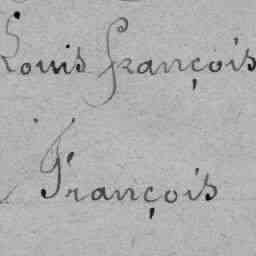 Louis françois
François